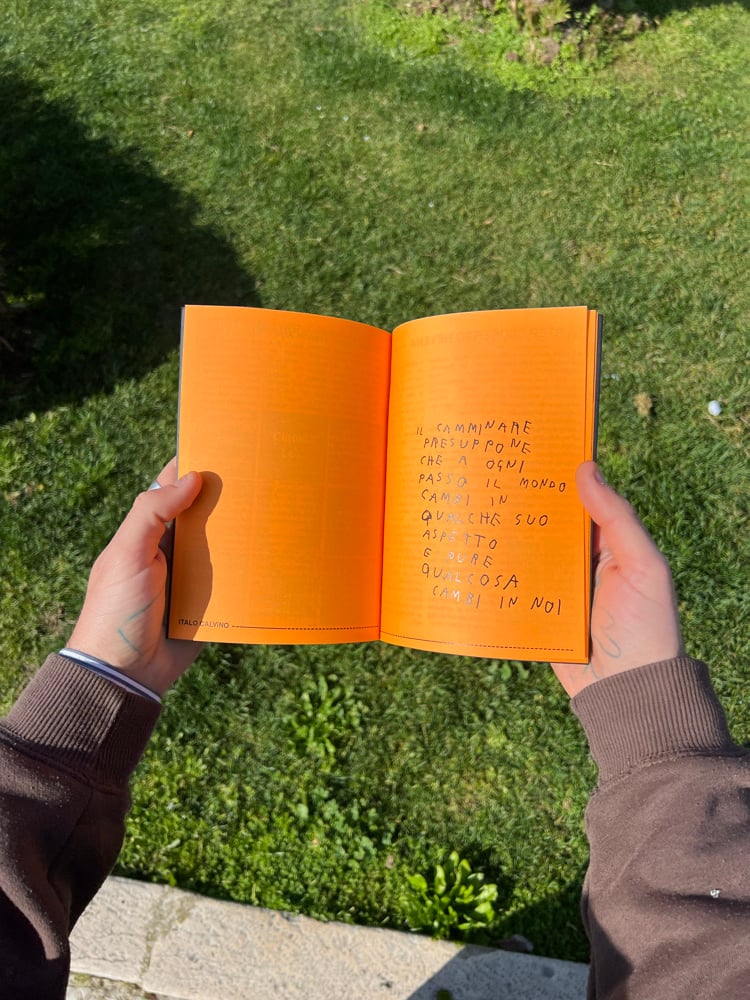 IL CAMMINARE
PRESUPPONE
CHE A OGNI
PASSO IL MONDO
CAMBI IN
QUALCHE SUO
ASPETTO
E PURE
QUALCOSA
CAMBI IN NOI
ITALO CALVINO